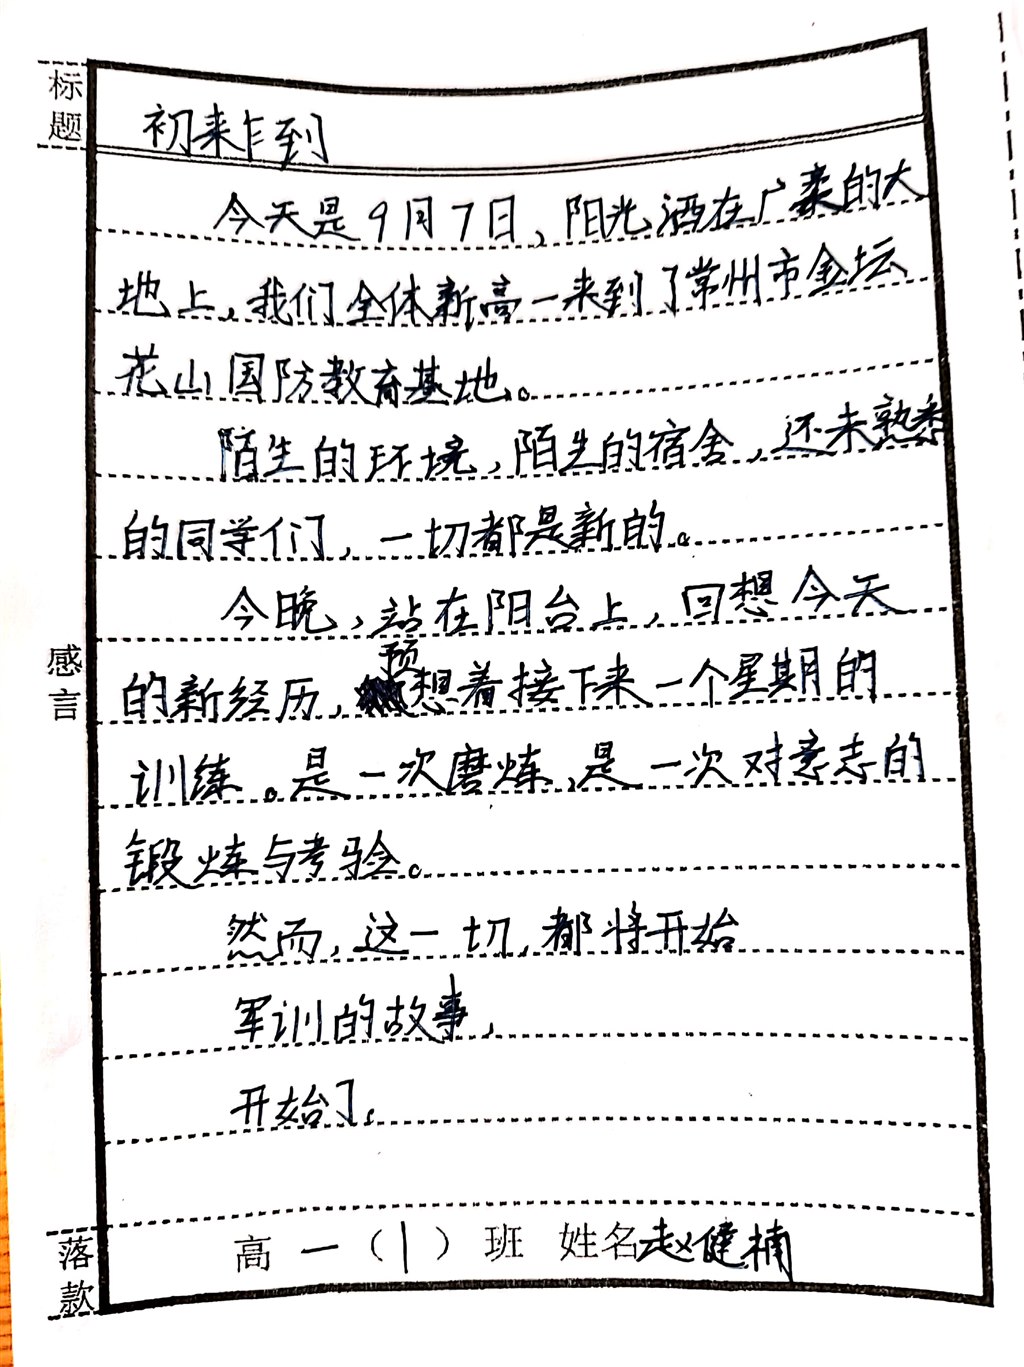 标题
初来乍到
今天是9月7日,阳光洒在广袤的大
地上,我们全体新高一来到了常州市金坛
花山国防教育基地。
陌生的环境,陌生的宿舍,还未熟悉
的同学们,一切都是新的。
今晚,站在阳台上,回想今天
的新经历,预想着接下来一个星期的
训练。是一次磨炼,是一次对意志的
锻炼与考验。
然而,这一切,都将开始
军训的故事,
开始了。
感言
落款
高一(1)班 姓名赵健楠